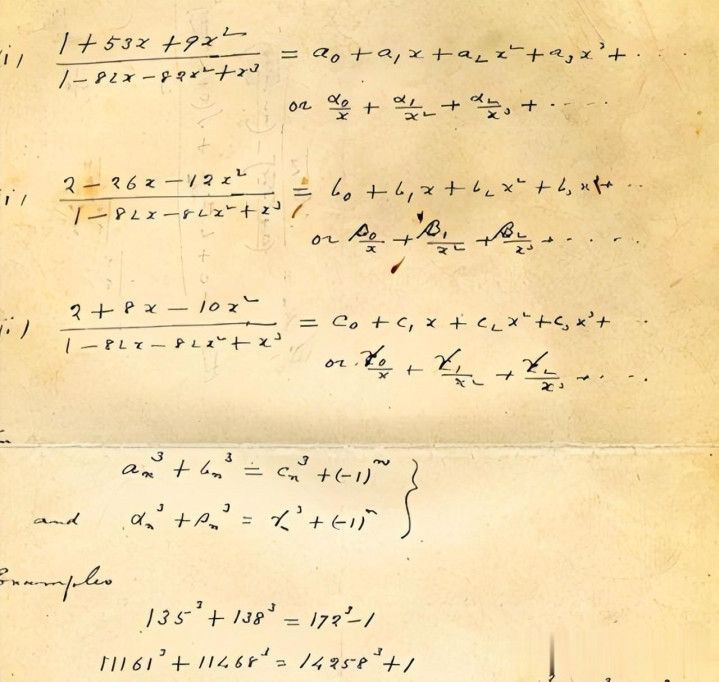 i) (1 + 53x + 9x²)/(1 − 82x − 82x² + x³) = a₀ + a₁x + a₂x² + a₃x³ + · · ·
or α₀/x + α₁/x² + α₂/x³ + · · · ·
ii) (2 − 26x − 12x²)/(1 − 82x − 82x² + x³) = b₀ + b₁x + b₂x² + b₃x³ + · ·
or β₀/x + β₁/x² + β₂/x³ + · · · ·
iii) (2 + 8x − 10x²)/(1 − 82x − 82x² + x³) = c₀ + c₁x + c₂x² + c₃x³ + · ·
or γ₀/x + γ₁/x² + γ₂/x³ + · · · ·
aₙ³ + bₙ³ = cₙ³ + (−1)ⁿ }
and αₙ³ + βₙ³ = γ³ + (−1)ⁿ }
Examples
135³ + 138³ = 172³ − 1
11161³ + 11468³ = 14258³ + 1